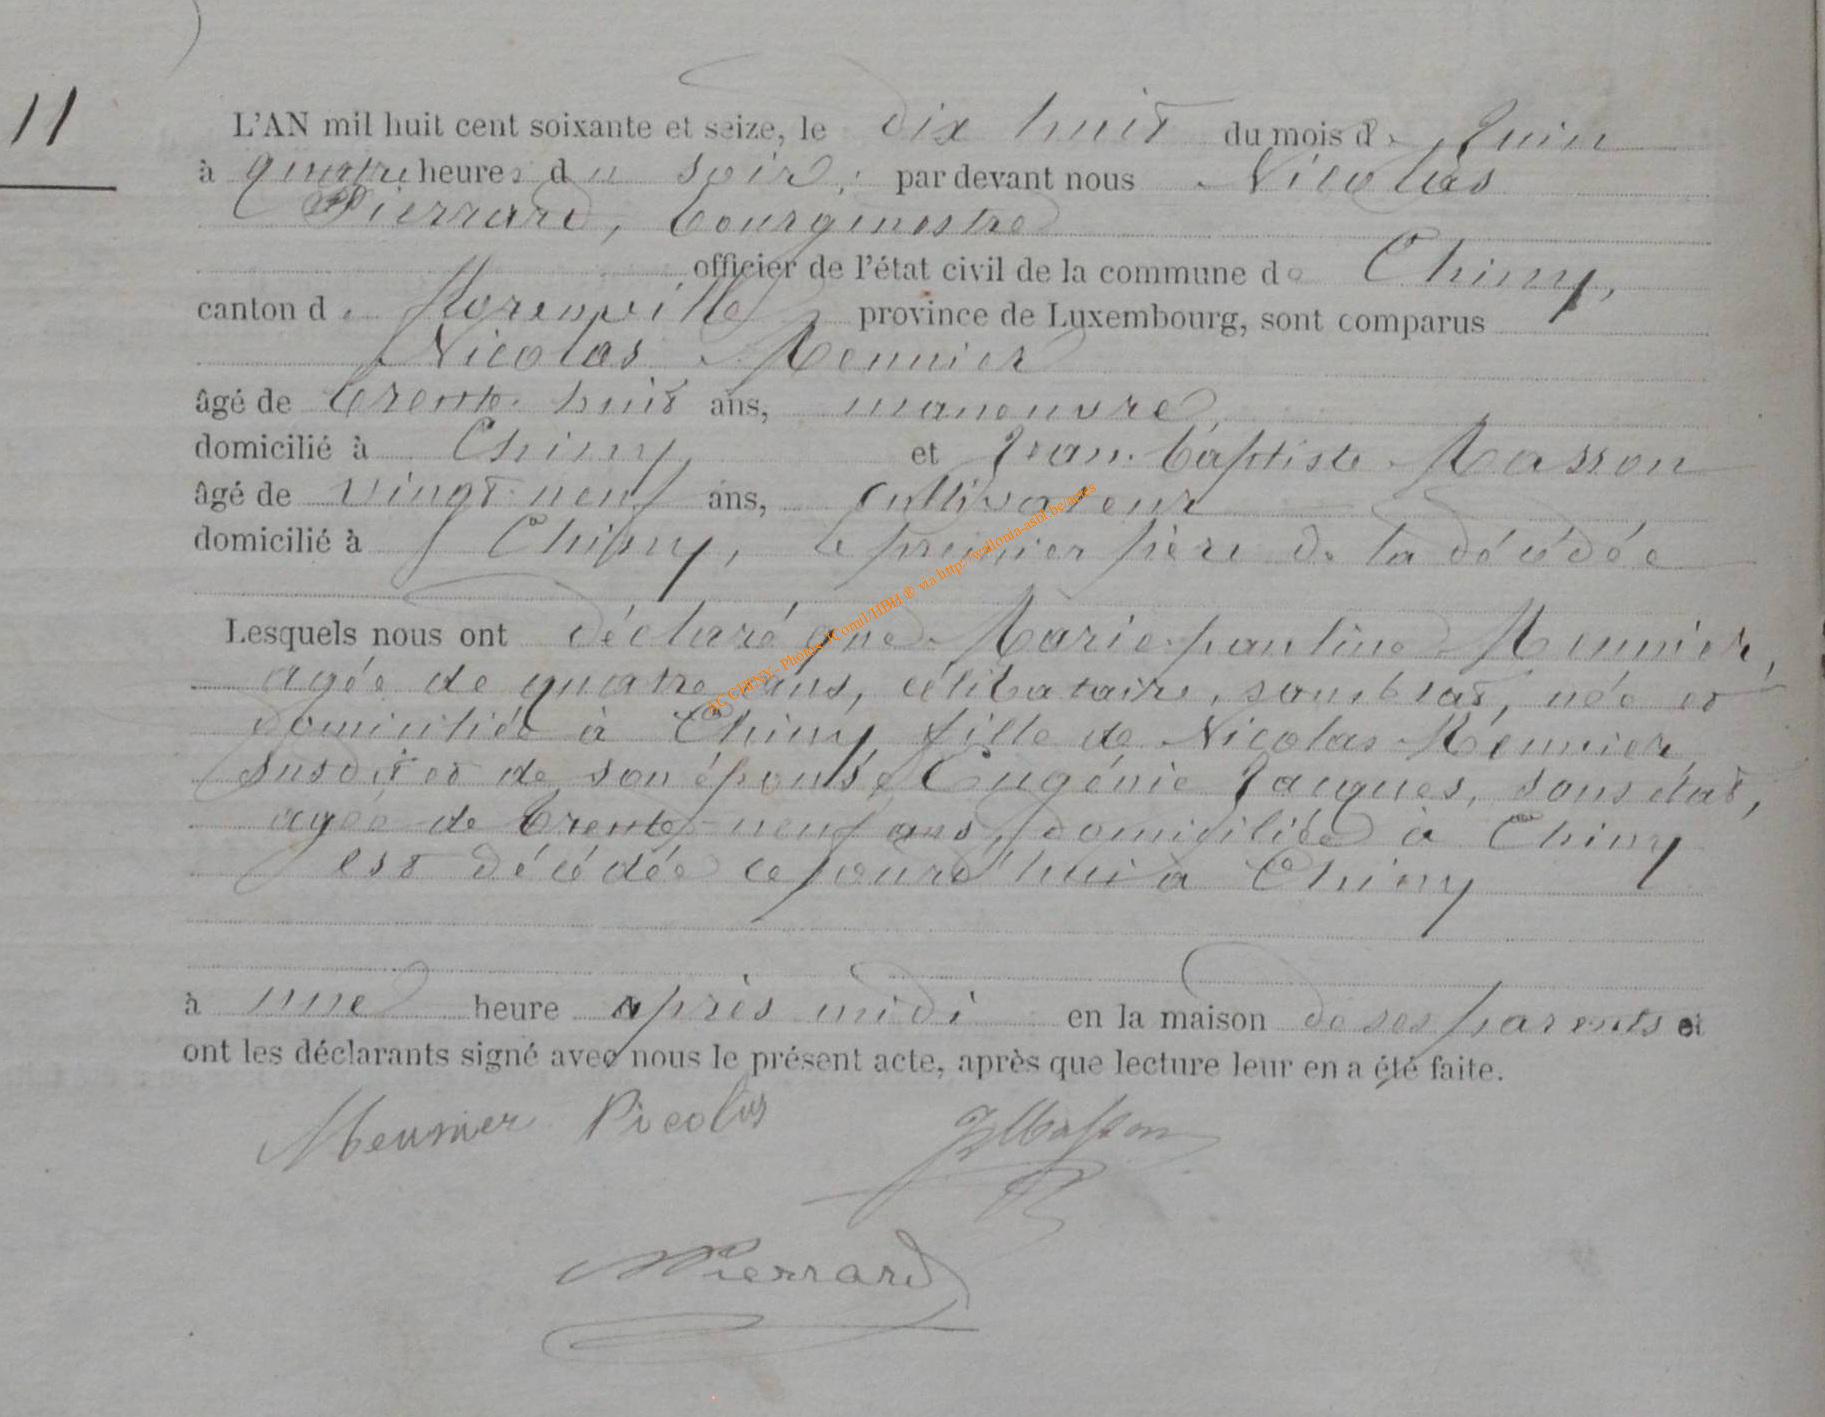 11
L'AN mil huit cent soixante et seize, le dix huit du mois de Juin
à quatre heures du soir, par devant nous Nicolas
Pierrard, bourgmestre
officier de l'état civil de la commune de Chiny,
canton de florenville province de Luxembourg, sont comparus
Nicolas Meunier
âgé de trente huit ans, manouvre
domicilié à Chiny, et Jean-baptiste Masson
âgé de vingt neuf ans, cultivateur
domicilié à Chiny, le premier père de la décédée
Lesquels nous ont déclaré que Marie-pauline Meunier,
agée de quatre ans, célibataire, sans état, née et
domiciliée à Chiny, fille de Nicolas Meunier
susdit et de son épouse Eugénie Jacques, sans état,
agée de trente-neuf ans, domiciliée à Chiny
est décédée cejourd'hui à Chiny
à une heure après midi en la maison de ses parents et
ont les déclarants signé avec nous le présent acte, après que lecture leur en a été faite.
Meunier Nicolas JBMasson
NPierrard
AC CHINY - Photos Comil HBH ® via http://wallonia-asbl.be/actes